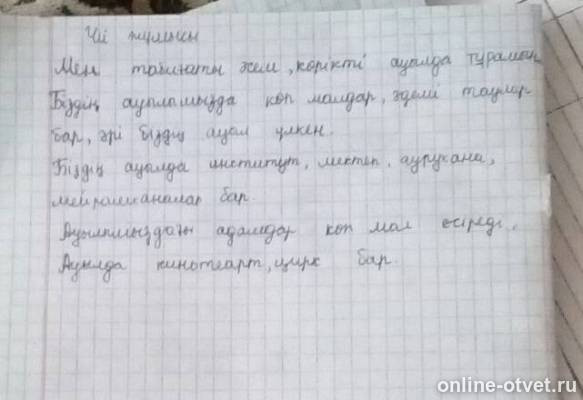 Үй жұмысы
Мен табиғаты әсем, көрікті ауылда тұрамын
Біздің ауылымызда көп малдар, әдемі таулар
бар, әрі біздің ауыл үлкен.
Біздің ауылда институт, мектеп, аурухана,
мейрамханалар бар.
Ауылымыздағы адамдар көп мал өсіреді.
Ауылда кинотеарт, цирк бар.
online-otvet.ru